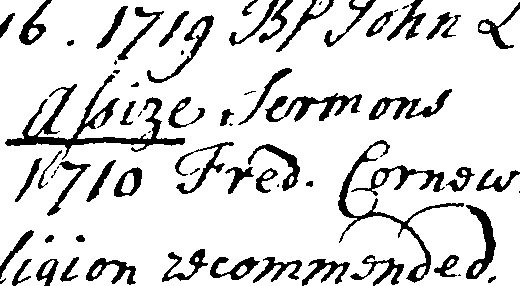 16. 1719 Bp John L
Assize Sermons
1710 Fred. Cornew
ligion recommended.